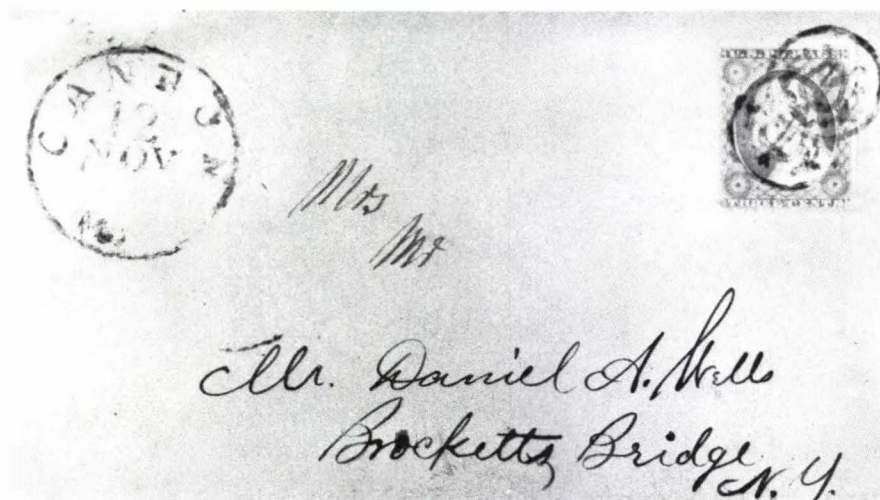 CANE JN
12
NOV
Mrs
Mr
Mr. Daniel A. Wells
Brocketts Bridge
N. Y.